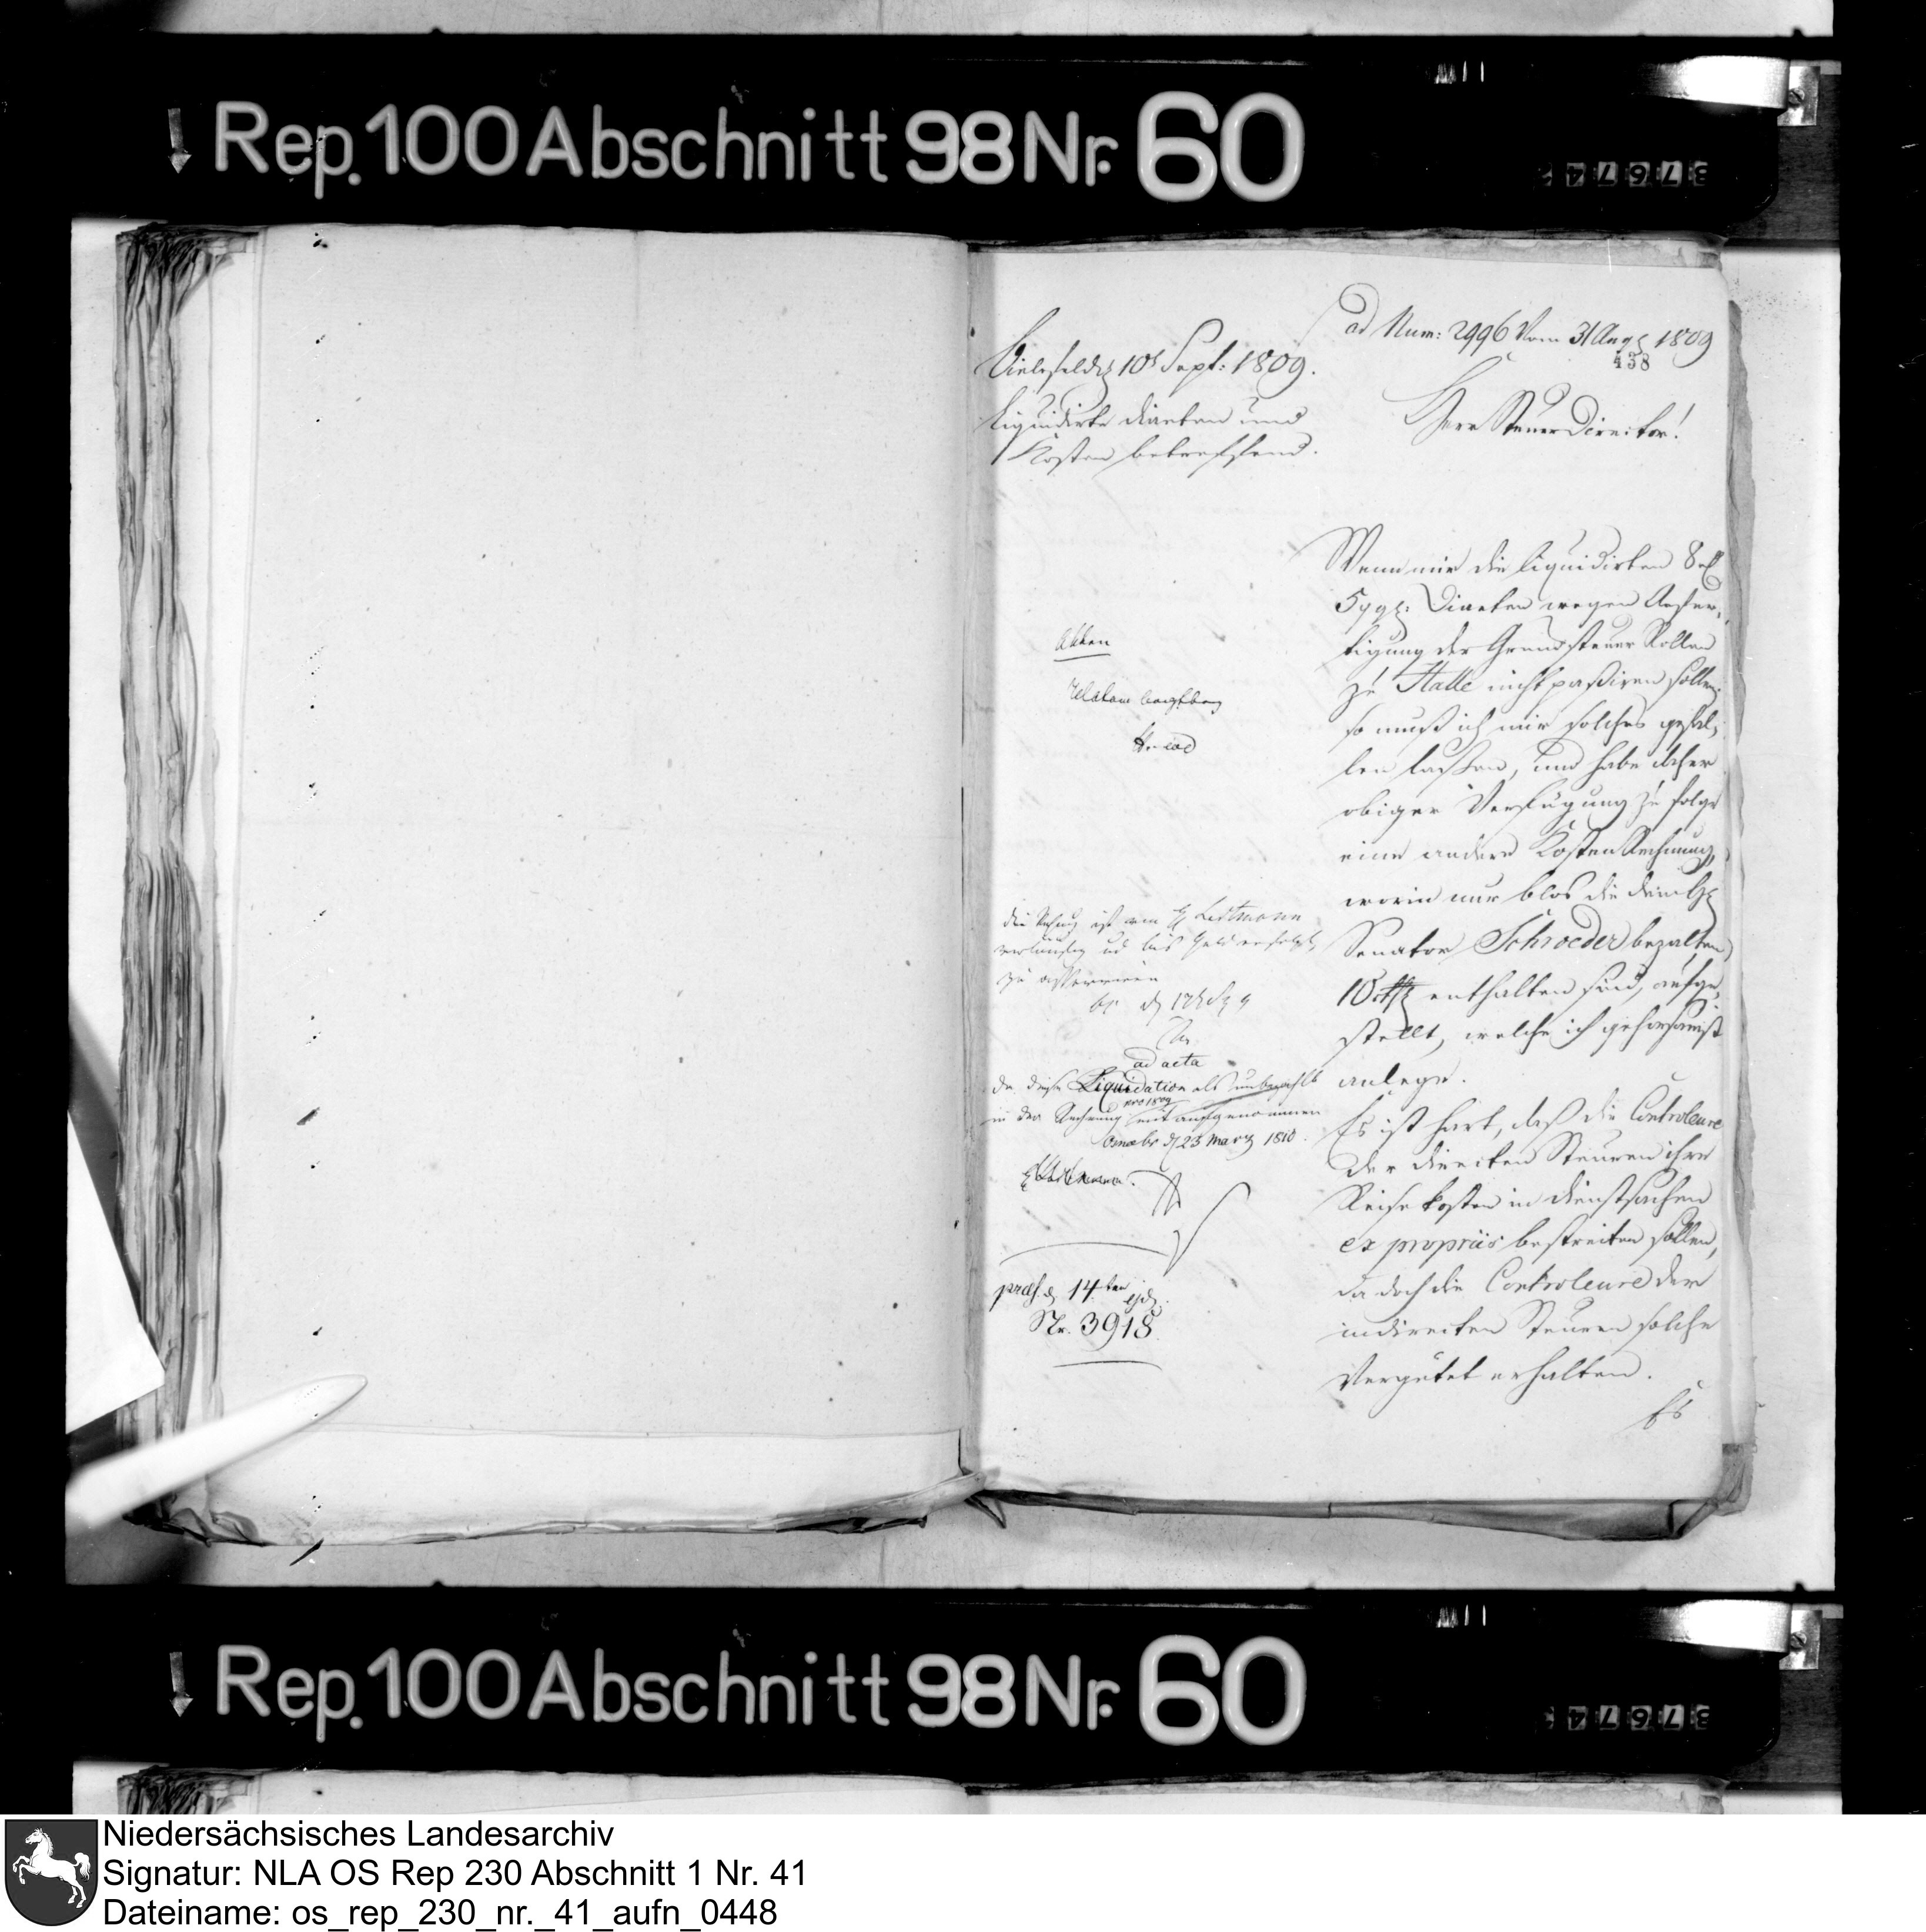 Rep. 100 Abschnitt 98 Nr. 60
37674
ad Num: 2996 Vom 31 Aug 1809
438
Bielefeld d 10t Sept: 1809.
Liquidirte Diaeten und
Kosten betreffend.
Herr SteuerDirector!
Wenn mir die liquidirten 8
5 ggl: Diaeten wegen Anfer-
tigung der Grundsteuer Rollen
zu Halle nicht paßiren sollen;
so muß ich mir solches gefal-
len laßen, und habe daher
obiger Verfügung zu folge
eine andere Kosten Rechnung,
worin nur blos die dem H
Senator Schroeder bezalten
10 enthalten sind, aufge-
stellt, welche ich gehorsamst
anlege.
Es ist hart, daß die Controleure
der directen Steuern ihre
Reisekosten in Dienstsachen
ex propriis bestreiten sollen,
da doch die Controleure der
indirecten Steuern solche
Vergütet erhalten.
Es
Akten
die ist vom H Lestmann
vorläufig bis Geld erfolgt,
zu asserviren
ad acta
da diese Liquidation als unbezahlt
in der Rechnung pro 1809 mit aufgenommen
Osnabr d 23 Marz 1810.
praes. d 14ten ejd.
Nr. 3918
Rep. 100 Abschnitt 98 Nr. 60
37674
Niedersächsisches Landesarchiv
Signatur: NLA OS Rep 230 Abschnitt 1 Nr. 41
Dateiname: os_rep_230_nr._41_aufn_0448